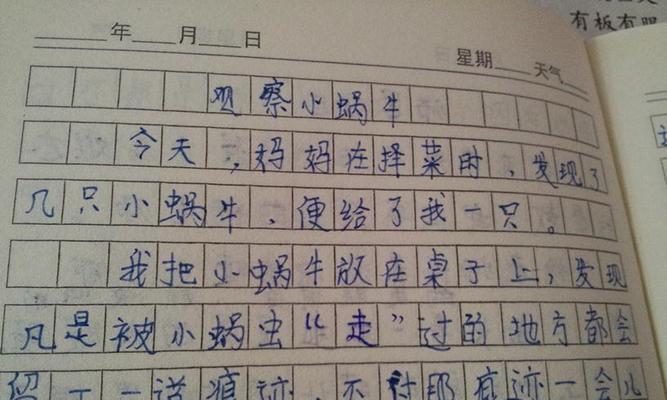 有板有眼
年 月 日 星期 天气
观察小蜗牛
今天，妈妈在择菜时，发现了
几只小蜗牛，便给了我一只。
我把小蜗牛放在桌子上，发现
凡是被小蜗虫“走”过的地方都会
留下一道痕迹，不过那痕迹一会儿